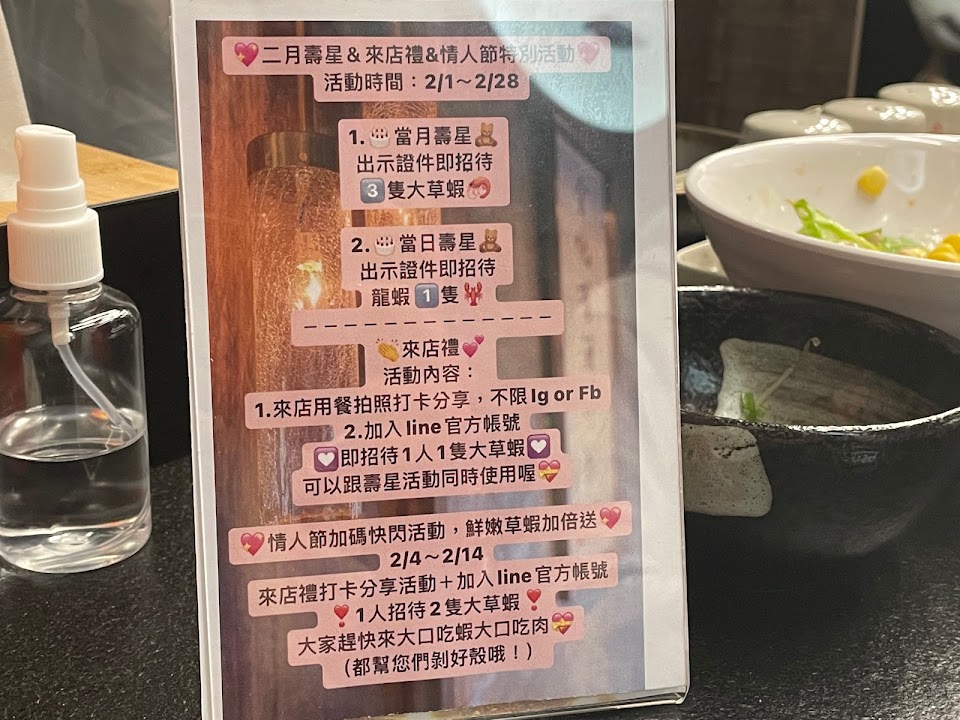 💖二月壽星＆來店禮&情人節特別活動💖
活動時間：2/1～2/28
1.🎂當月壽星🧸
出示證件即招待
3️⃣隻大草蝦🦐
2.🎂當日壽星🧸
出示證件即招待
龍蝦1️⃣隻🦞
－－－－－－－－－－－－－
👏來店禮💕
活動內容：
1.來店用餐拍照打卡分享，不限Ig or Fb
2.加入line官方帳號
💟即招待1人1隻大草蝦💟
可以跟壽星活動同時使用喔💝
💖情人節加碼快閃活動，鮮嫩草蝦加倍送💖
2/4～2/14
來店禮打卡分享活動＋加入line官方帳號
❣️1人招待2隻大草蝦❣️
大家趕快來大口吃蝦大口吃肉💝
（都幫您們剝好殼哦！）